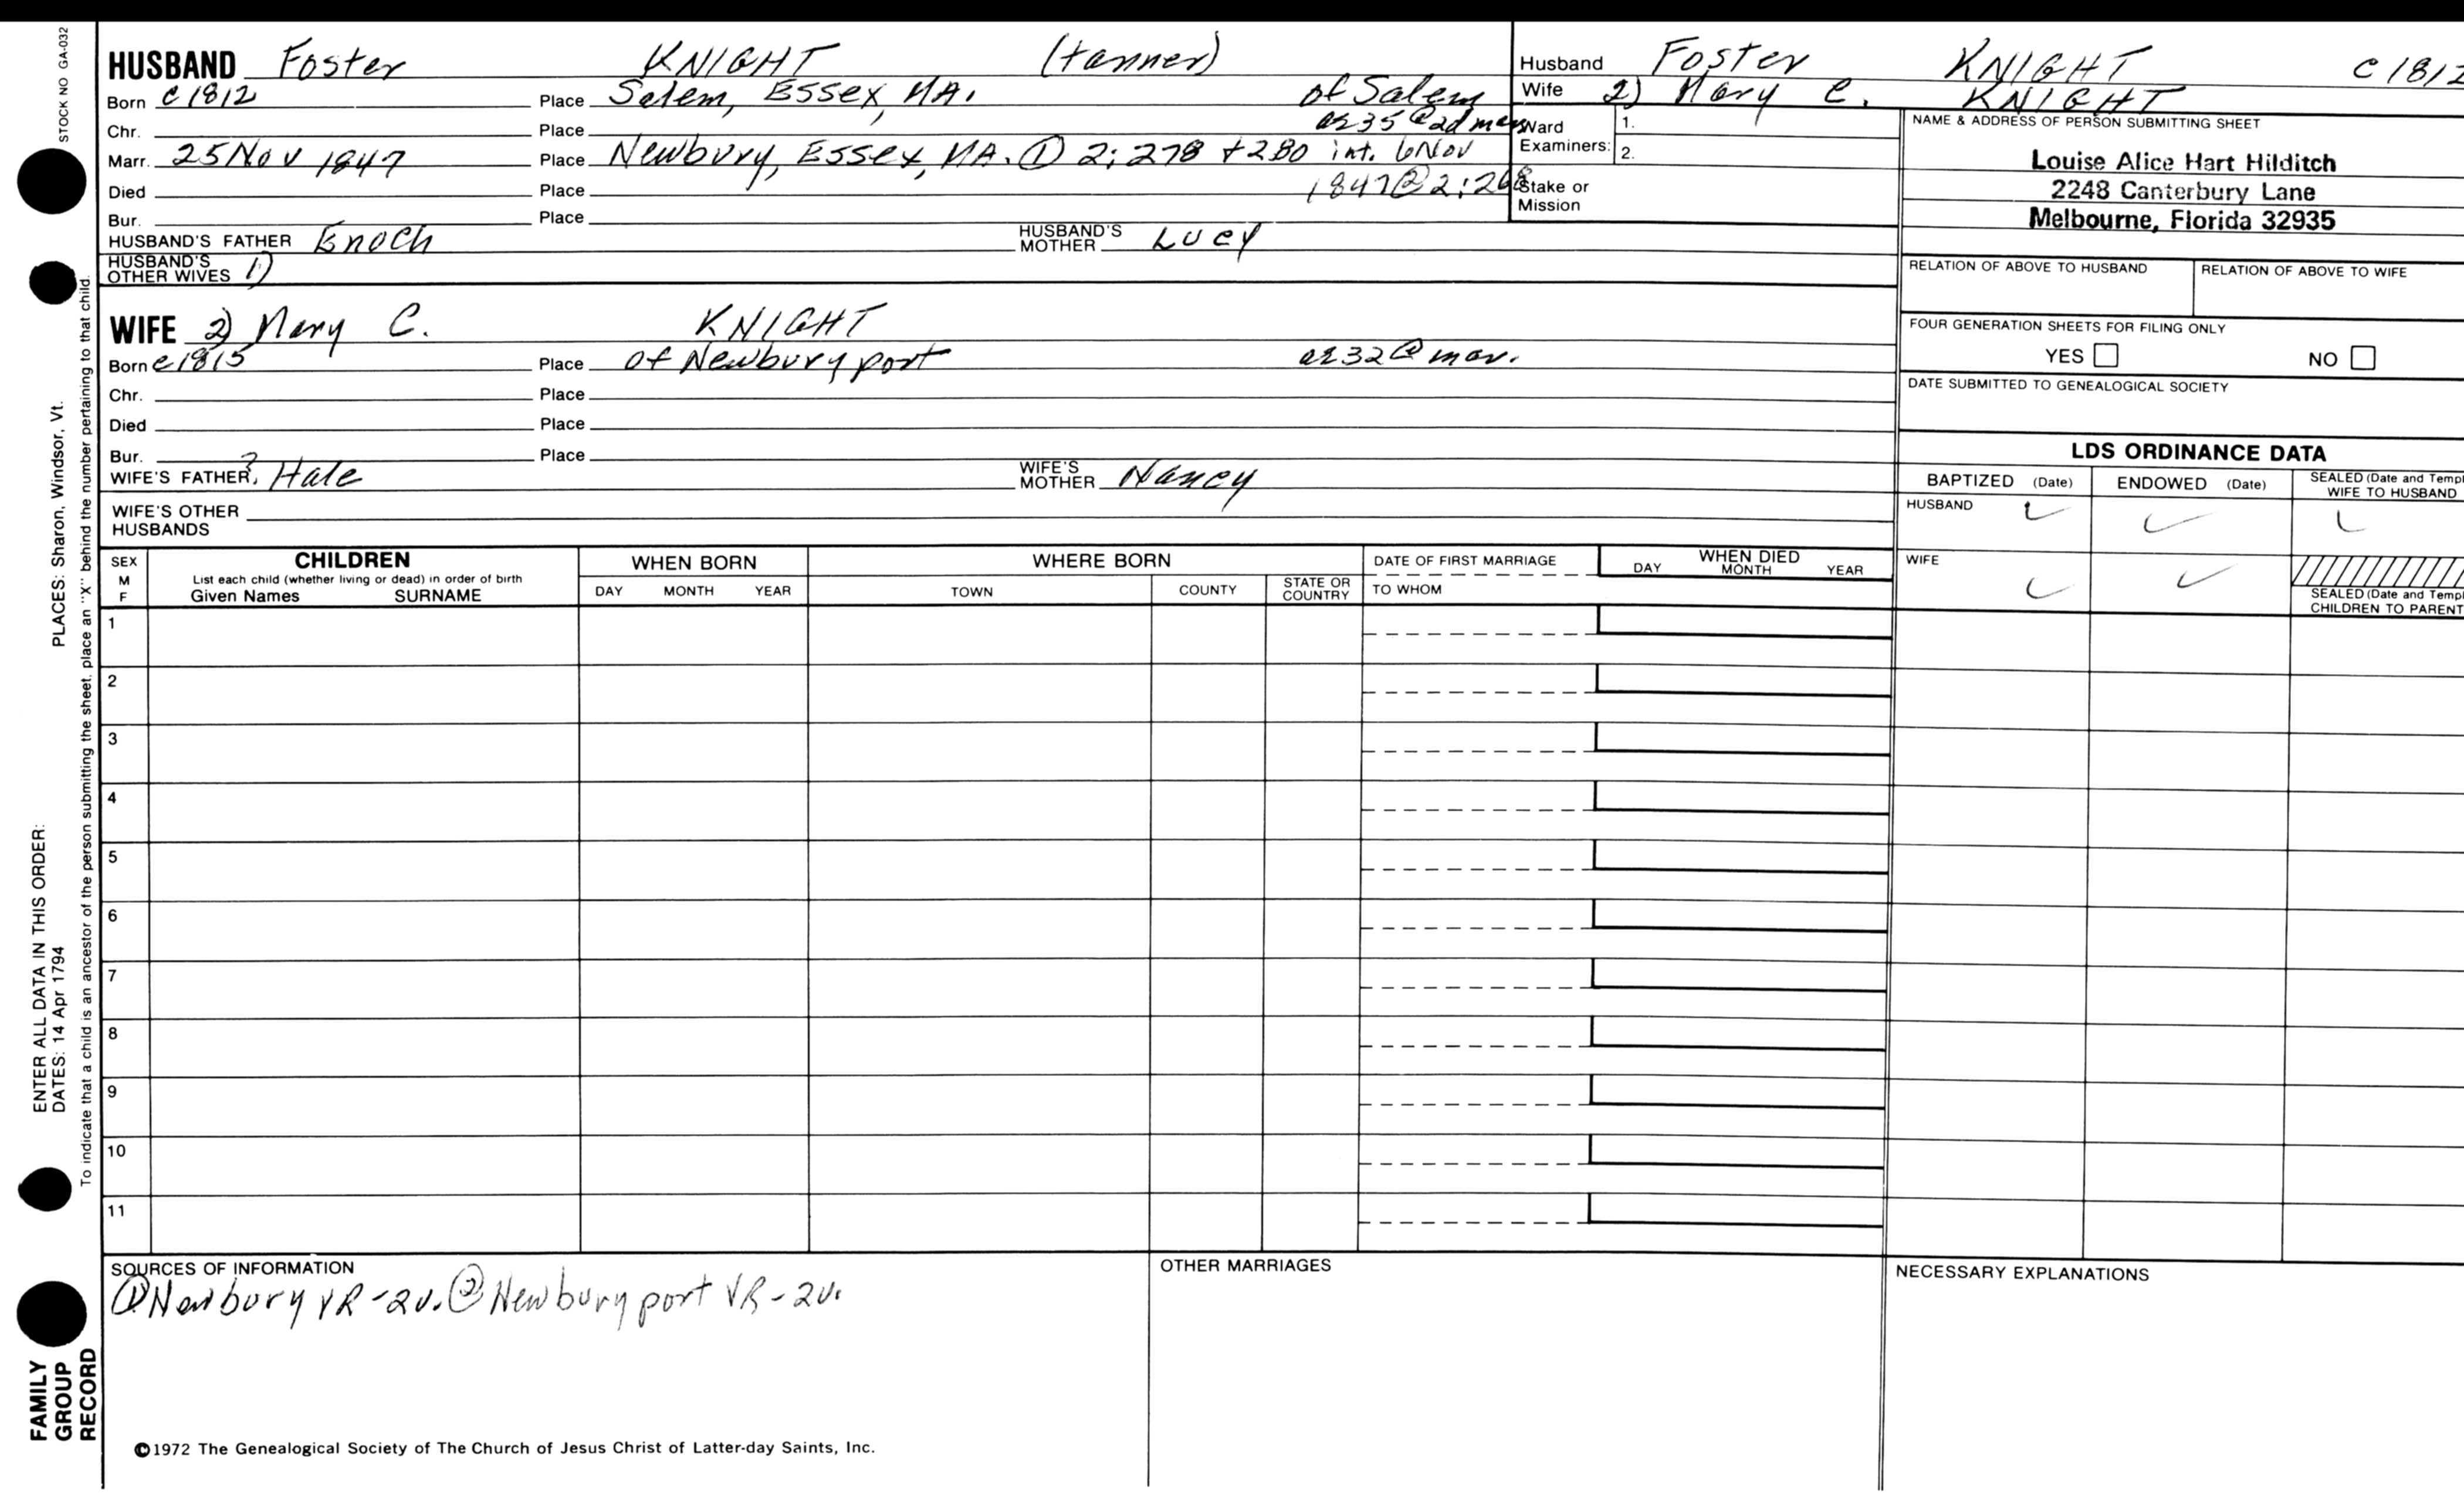 STOCK NO GA-032
PLACES: Sharon, Windsor, Vt.
ENTER ALL DATA IN THIS ORDER:
DATES: 14 Apr 1794
To indicate that a child is an ancestor of the person submitting the sheet, place an "X" behind the number pertaining to that child.
FAMILY
GROUP
RECORD
HUSBAND Foster KNIGHT (tanner)
Born c1812 Place Salem, Essex, MA. of Salem
Chr. Place ae 35 @ 2d mar
Marr. 25 Nov 1847 Place Newbury, Essex, MA. ① 2:278 + 280 int. 6 Nov
Died Place 1847 ② 2:268
Bur. Place
HUSBAND'S FATHER Enoch HUSBAND'S MOTHER Lucy
HUSBAND'S OTHER WIVES 1)
WIFE 2) Mary C. KNIGHT
Born c1815 Place of Newburyport ae 32 @ mar.
Chr. Place
Died Place
Bur. Place
WIFE'S FATHER ? Hale WIFE'S MOTHER Nancy
WIFE'S OTHER
HUSBANDS
Husband Foster KNIGHT c1812
Wife 2) Mary C. KNIGHT
Ward 1.
Examiners: 2.
Stake or
Mission
NAME & ADDRESS OF PERSON SUBMITTING SHEET
Louise Alice Hart Hilditch
2248 Canterbury Lane
Melbourne, Florida 32935
RELATION OF ABOVE TO HUSBAND RELATION OF ABOVE TO WIFE
FOUR GENERATION SHEETS FOR FILING ONLY
YES NO
DATE SUBMITTED TO GENEALOGICAL SOCIETY
LDS ORDINANCE DATA
BAPTIZED (Date) ENDOWED (Date) SEALED (Date and Templ
WIFE TO HUSBAND
HUSBAND ✓ ✓ ✓
WIFE ✓ ✓
SEALED (Date and Templ
CHILDREN TO PARENT
SEX
M
F
CHILDREN
List each child (whether living or dead) in order of birth
Given Names SURNAME
WHEN BORN
DAY MONTH YEAR
WHERE BORN
TOWN COUNTY STATE OR COUNTRY
DATE OF FIRST MARRIAGE
TO WHOM
WHEN DIED
DAY MONTH YEAR
1
2
3
4
5
6
7
8
9
10
11
SOURCES OF INFORMATION
① Newbury VR - 2v. ② Newburyport VR - 2v.
OTHER MARRIAGES
NECESSARY EXPLANATIONS
©1972 The Genealogical Society of The Church of Jesus Christ of Latter-day Saints, Inc.